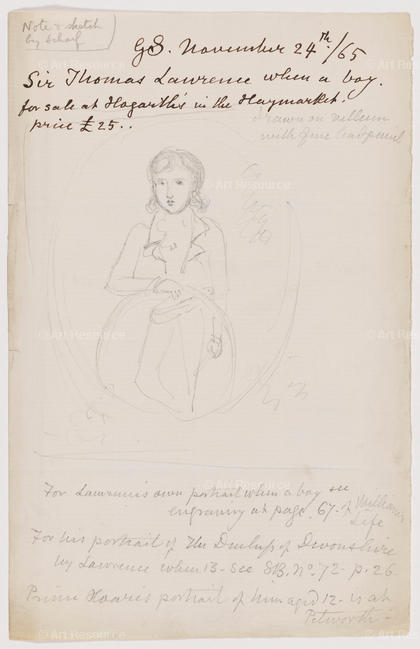 Note & sketch
by Scharf
GS. November 24th./65
Sir Thomas Lawrence when a boy.
for sale at Hogarth's in the Haymarket.
price £25..
drawn on vellum
with fine lead pencil
For Lawrence's own portrait when a boy see
engraving at page 67. of Williams
Life
For his portrait of the Duchess of Devonshire
by Lawrence when 13 - see SB. No. 72 - p. 26
Prince Hoare's portrait of him aged 12 - is at
Petworth -
© Art Resource